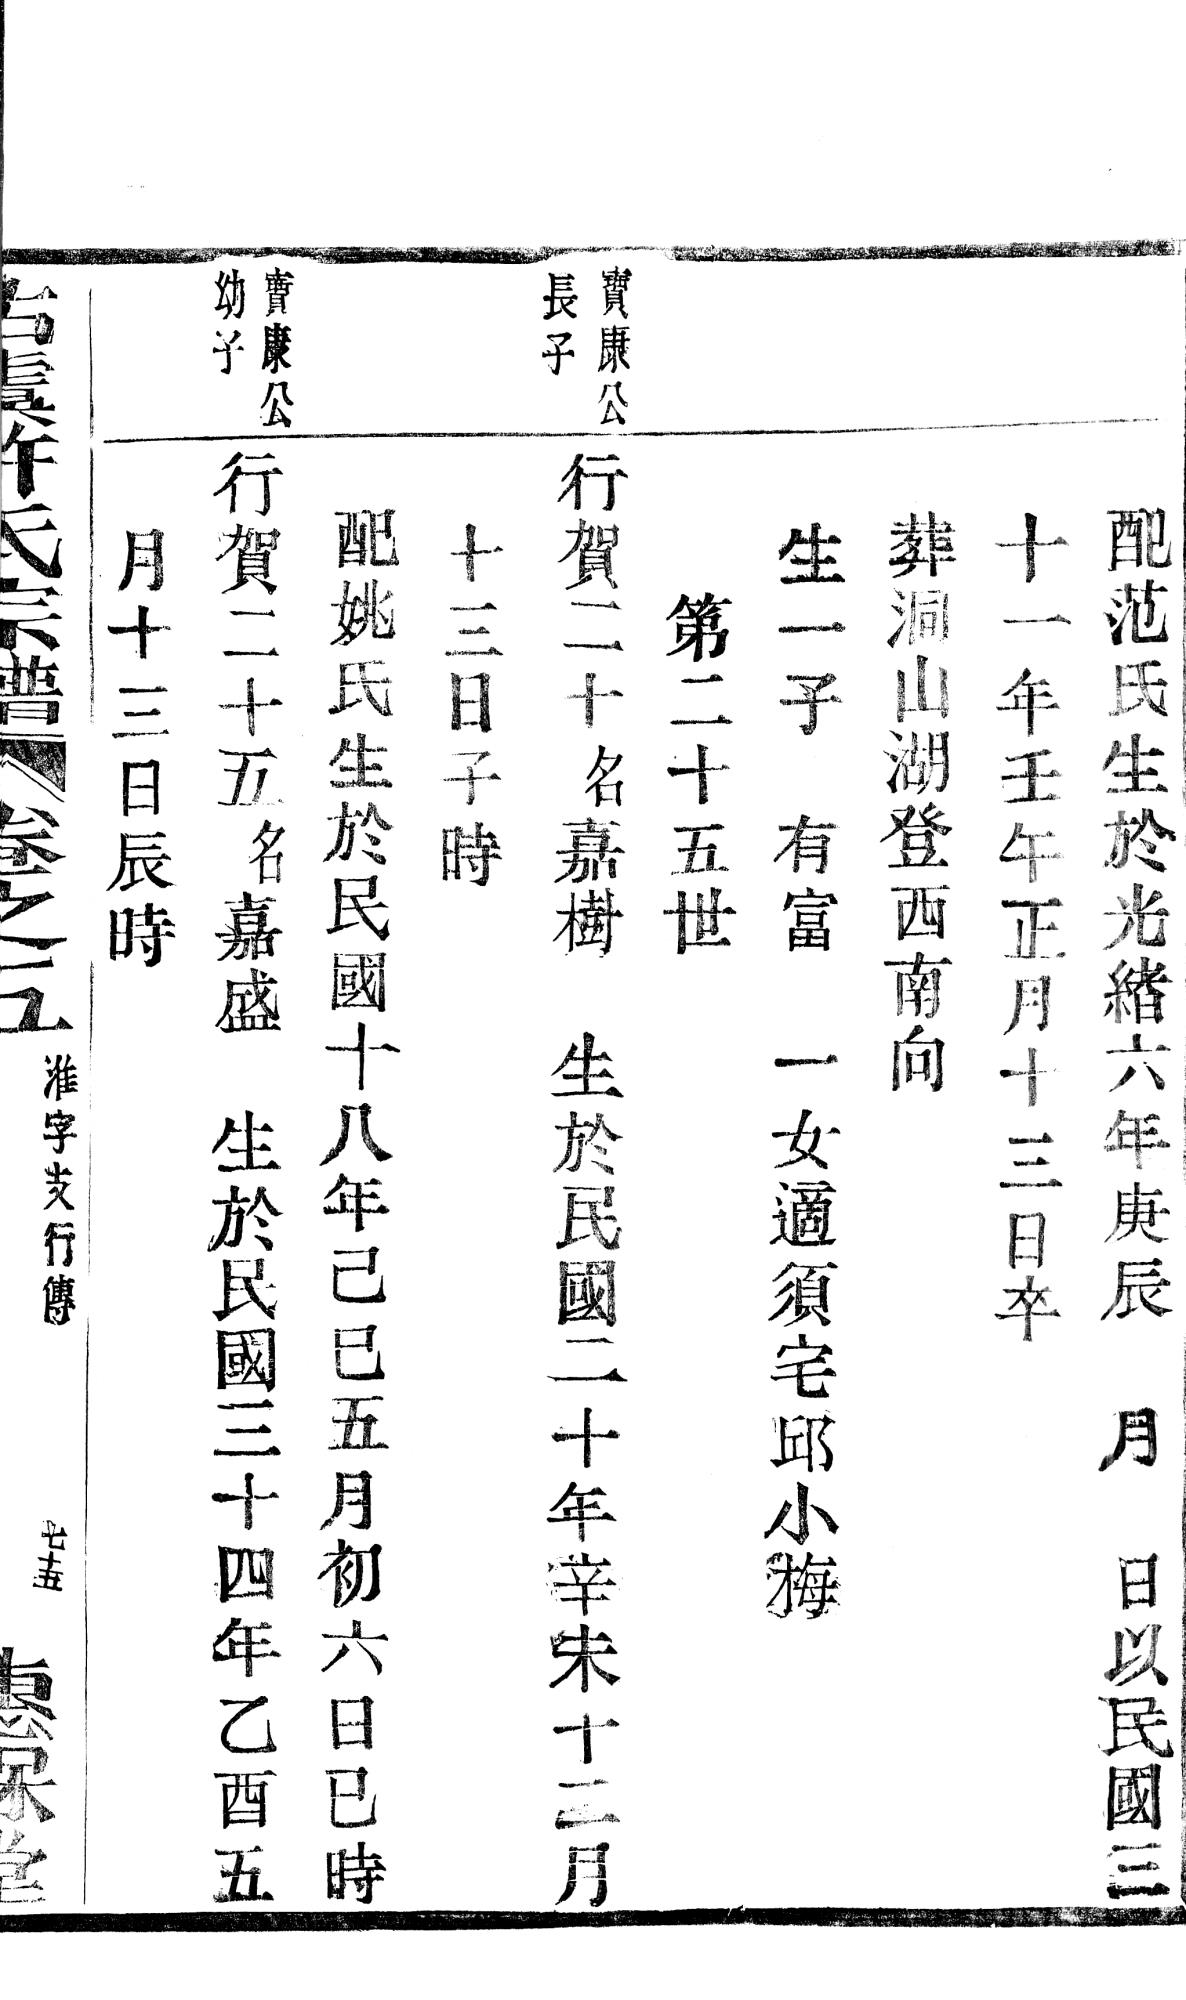 配范氏生於光緒六年庚辰　月　日以民國三
十一年壬午正月十三日卒
葬洞山湖登西南向
生一子　有富　一女適須宅邱小梅
第二十五世
寶康公
長子
行賀二十名嘉樹　生於民國二十年辛未十二月
十三日子時
配姚氏生於民國十八年己巳五月初六日巳時
寶康公
幼子
行賀二十五名嘉盛　生於民國三十四年乙酉五
月十三日辰時
古虞許氏宗譜　卷之五
淮字支行傳
七十五
惠保堂